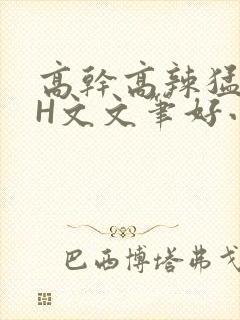 高幹高辣猛
H文文筆好
巴西博塔弗戈